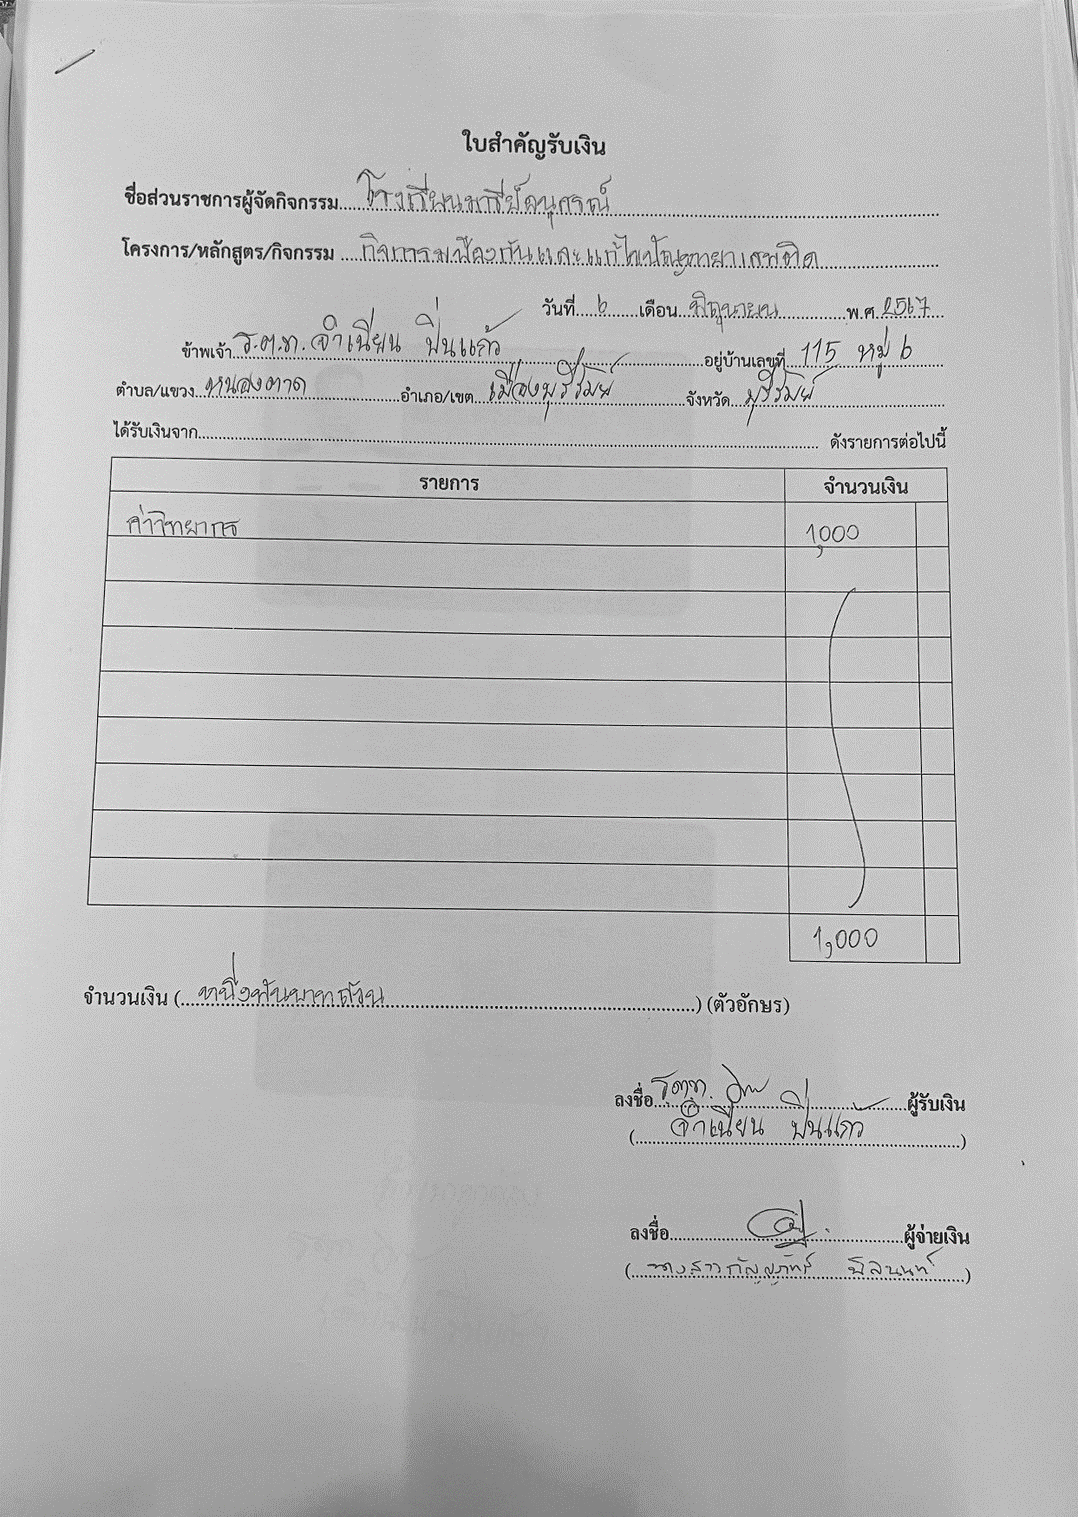 ใบสำคัญรับเงิน
ชื่อส่วนราชการผู้จัดกิจกรรม โรงเรียนมารีย์อนุสรณ์
โครงการ/หลักสูตร/กิจกรรม กิจกรรมป้องกันและแก้ไขปัญหายาเสพติด
วันที่ 6 เดือน มิถุนายน พ.ศ. 2567
ข้าพเจ้า ร.ต.ท. จำเนียน ปิ่นแก้ว อยู่บ้านเลขที่ 115 หมู่ 6
ตำบล/แขวง หนองตาด อำเภอ/เขต เมืองบุรีรัมย์ จังหวัด บุรีรัมย์
ได้รับเงินจาก ดังรายการต่อไปนี้
รายการ จำนวนเงิน
ค่าวิทยากร 1,000
1,000
จำนวนเงิน (หนึ่งพันบาทถ้วน) (ตัวอักษร)
ลงชื่อ ร.ต.ท. ผู้รับเงิน
(จำเนียน ปิ่นแก้ว)
ลงชื่อ ผู้จ่ายเงิน
(นางสาว)